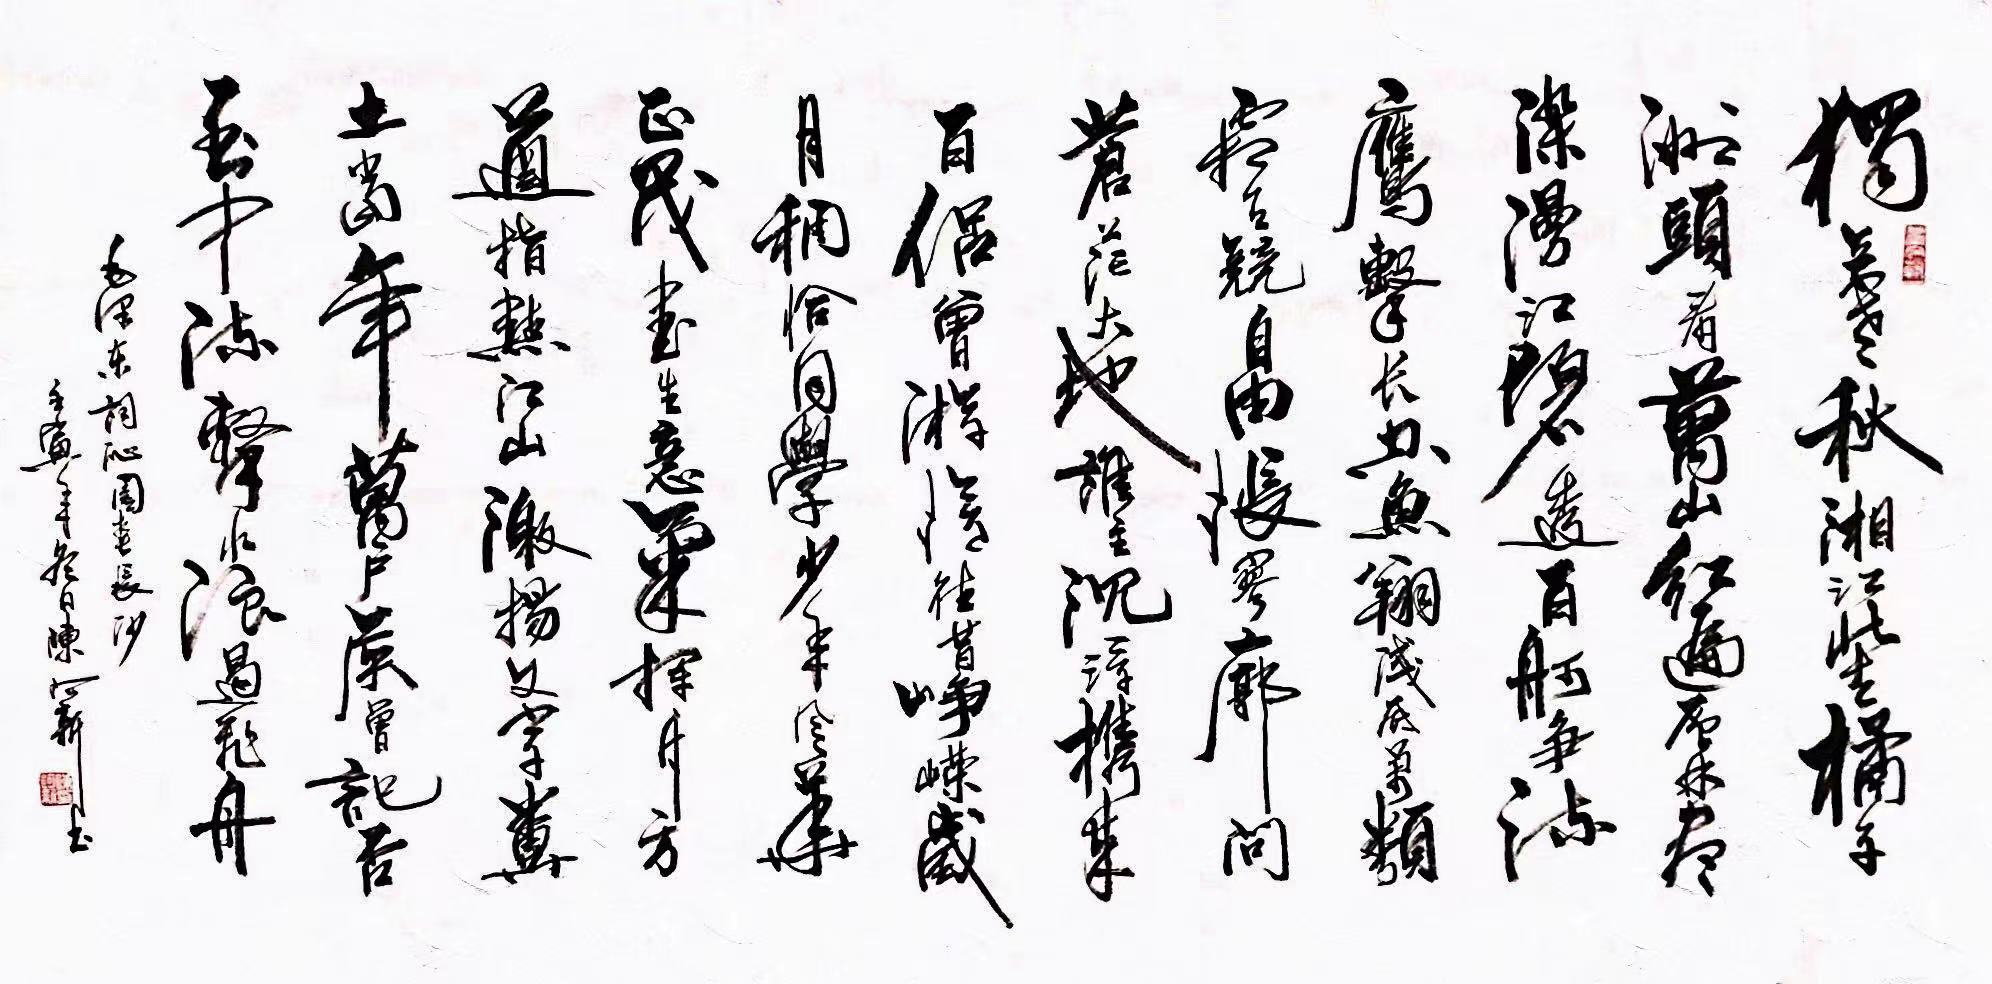 獨立寒秋湘江北去橘子
洲頭看萬山紅遍層林盡
染漫江碧透百舸爭流
鷹擊长空魚翔淺底萬類
霜天競自由悵寥廓問
蒼茫大地誰主沉浮攜來
百侶曾游憶往昔崢嶸歲
月稠恰同學少年風華
正茂書生意氣揮斥方
遒指點江山激揚文字糞
土當年萬戶侯曾記否
到中流擊水浪遏飛舟
毛澤东詞沁園春長沙
壬寅年冬日陳新书